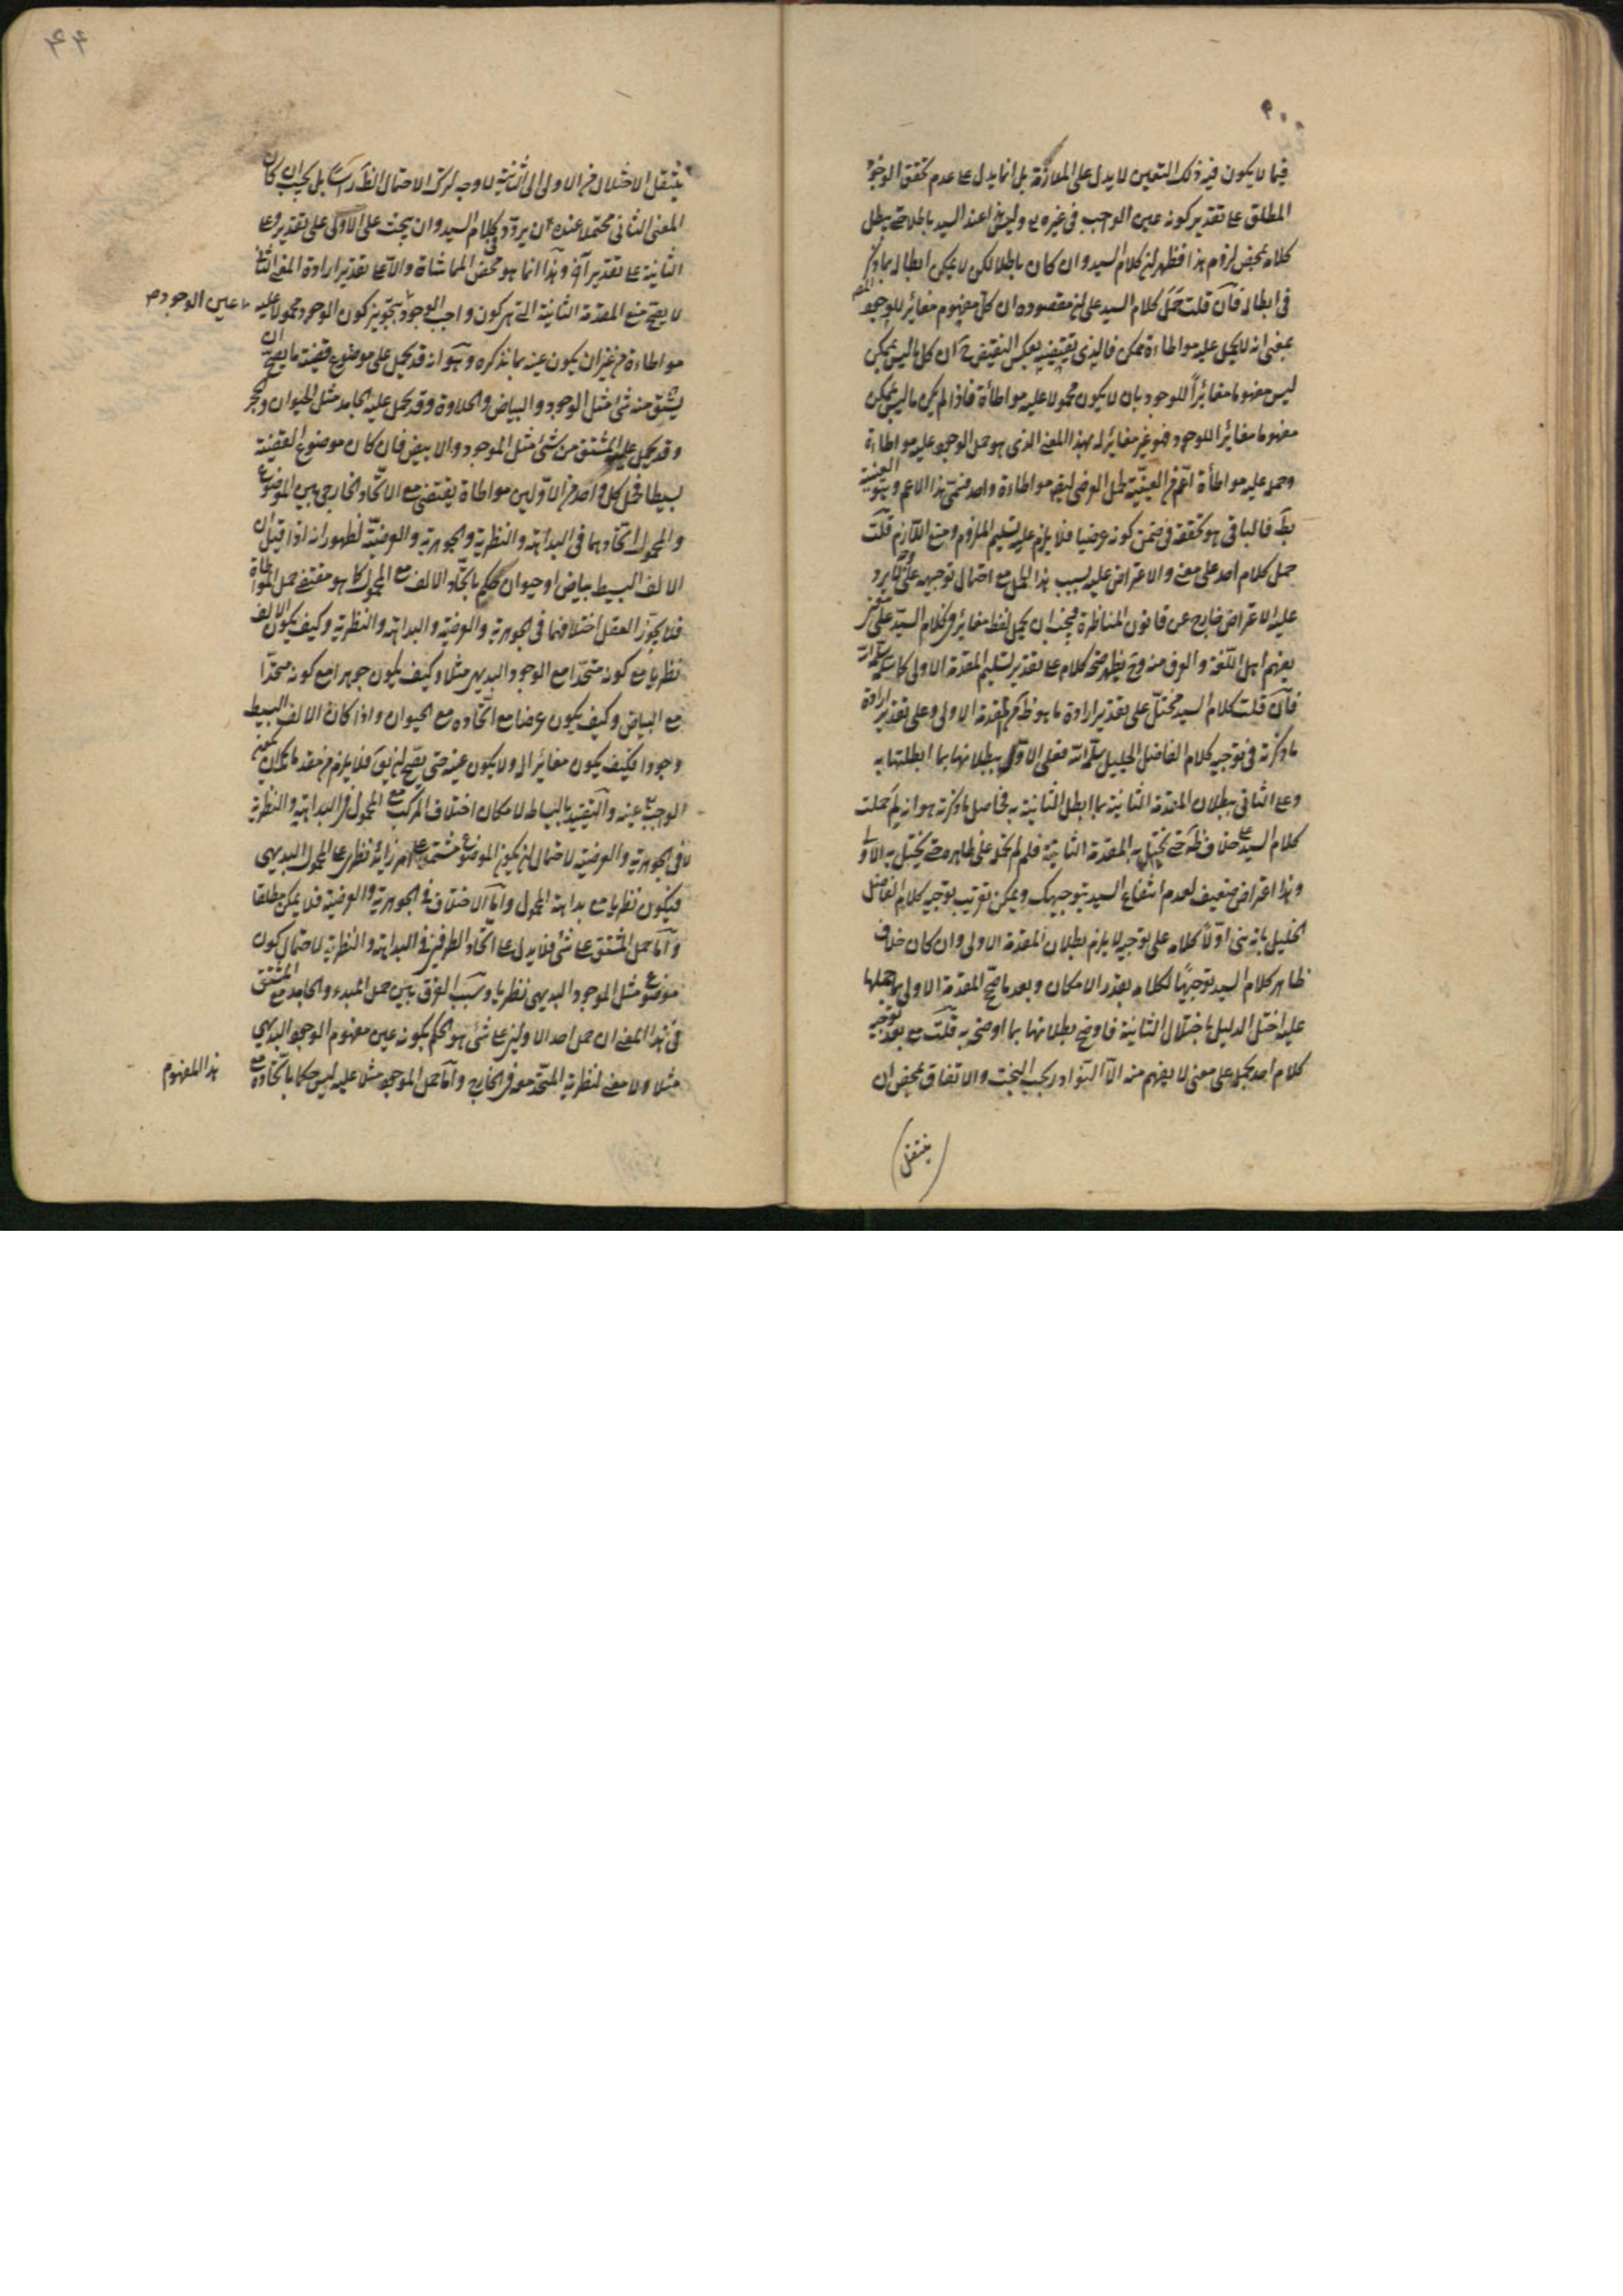 فيما لا يكون فيه ذلك التعين لا يدل على الملازمة بل انما يدل على عدم تحقق الوجود
المطلق على تقدير كونه عين الواجب في غيره وليس هذا عند السيد باطلا حتى يبطل
كلامه بمحض لزوم هذا فظهر ان كلام السيد وان كان باطلا لكن لا يمكن ابطاله بما ذكره
في ابطاله فان قلت حمل كلام السيد على ان مقصوده ان كل مفهوم مغائر للوجود
بمعنى انه لا يحمل عليه مواطاءة ممكن فالذي يقتضيه بعكس النقيض ح ان كل ما ليس بممكن
ليس مفهوما مغائرا للوجود بان لا يكون محمولا عليه مواطأة فاذا لم يكن ما ليس بممكن
مفهوما مغائرا للوجود فهو غير مغائر له بهذا المعنى الذي هو حمل الوجود عليه مواطاءة
وحمله عليه مواطأة اعم من العينية لحمل العرضي ايضا مواطاءة واحد قسمي هذا الاعم وهو العينية
بط فالباقي هو تحققه في ضمن كونه عرضيا فلا يلزم عليه تسليم الملزوم ومنع اللازم قلت
حمل كلام احد على معنى والاعتراض عليه بسبب هذا الحمل مع احتمال توجيهه على وجه لا يرد
عليه الاعتراض خارج عن قانون المناظرة فيجب ان يحمل لفظ مغائر في كلام السيد على معنى
يفهم اهل اللغة والعرف منه وح يظهر صحة كلامه على تقدير تسليم المقدمة الاولى كما
فان قلت كلام السيد مختل على تقدير ارادة ما هو ظاهر المقدمة الاولى وعلى تقدير ارادة
ما ذكرته في توجيه كلام الفاضل الجليل سلمه الله فعلى الاول يبطلانها بما ابطلتها به
وعلى الثاني ببطلان المقدمة الثانية بما ابطل الثانية به فحاصل ما ذكرته هو انه لم حملت
كلام السيد على خلاف ظاهره حتى تختل به المقدمة الثانية فلم لم تحمله على ظاهره حتى يختل به الاولى
وهذا اعتراض ضعيف لعدم انتفاع السيد بتوجيهك ويمكن تقريب توجيه كلام الفاضل
الجليل بانه بنى اولا كلامه على توجيه لا يلزم بطلان المقدمة الاولى وان كان خلاف
ظاهر كلام السيد توجيها لكلامه بقدر الامكان وبعد ما صح المقدمة الاولى بما حملها
عليه اختل الدليل باختلال الثانية فاوضح بطلانها بما اوضحه به قلت مع بعد توجيه
كلام احد بحمله على معنى لا يفهم منه الا البخت والاتفاق بمحض ان
(ينتقل)
٩٩
ينتقل الاختلال من الاولى الى الثانية لا وجه لترك الاحتمال الظاهر بل يجب ان كان
المعنى الثاني محتملا عنده ان يردد كلام السيد وان يبحث على الاولى على تقدير وعلى
الثانية على تقدير آخر وهذا انما هو محض المماشاة والا على تقدير ارادة المعنى الثاني
لا يصح منع المقدمة الثانية التي هي كون واجب الوجود بتجويز كون الوجود محمولا عليه
عين الوجود
مواطاءة من غير ان يكون عينه بما نذكره وهو انه قد يحمل على موضوع قضية ما يصح ان
يشتق منه شئ مثل الوجود والبياض والحلاوة وقد يحمل عليه الجامد مثل الحيوان والحجر
وقد يحمل عليه المشتق من شئ مثل الموجود والابيض فان كان موضوع القضية
بسيطا فحمل كل واحد من الاولين مواطاة يقتضي مع الاتحاد الخارجي بين الموضوع
والمحمول اتحادهما في البداهة والنظرية والجوهرية والعرضية لظهور انه اذا قيل ان
الالف البسيط بياض او حيوان حكم باتحاد الالف مع المحمول كما هو مقتضى حمل المواطاة
فلا يجوز العقل اختلافهما في الجوهرية والعرضية والبداهة والنظرية وكيف يكون الالف
نظريا مع كونه متحدا مع الوجود البديهي مثلا وكيف يكون جوهرا مع كونه متحدا
مع البياض وكيف يكون عرضا مع اتحاده مع الحيوان واذا كان الالف البسيط
وجودا فكيف يكون مغائرا له ولا يكون عينه حتى يصح ان يق فلا يلزم من مقدماتك ان يكون
الوجود عينه والتقييد بالبساطة لامكان اختلاف المركب مع المحمول في البداهة والنظرية
لا في الجوهرية والعرضية لاحتمال ان يكون الموضوع مشتملا على امر زائد نظري على المحمول البديهي
فيكون نظريا مع بداهة المحمول واما الاختلاف في الجوهرية والعرضية فلا يمكن مطلقا
واما حمل المشتق على شئ فلا يدل على اتحاد الطرفين في البداهة والنظرية لاحتمال كون
موضوع مثل الموجود البديهي نظريا وسبب الفرق بين حمل المبدء والجامد مع المشتق
في هذا المعنى ان حمل احد الاولين على شئ هو الحكم بكونه عين مفهوم الوجود البديهي
مثلا ولا معنى لنظرية المتحد معه في الخارج واما حمل الموجود مثلا عليه ليس حكما باتحاده مع
هذا المفهوم